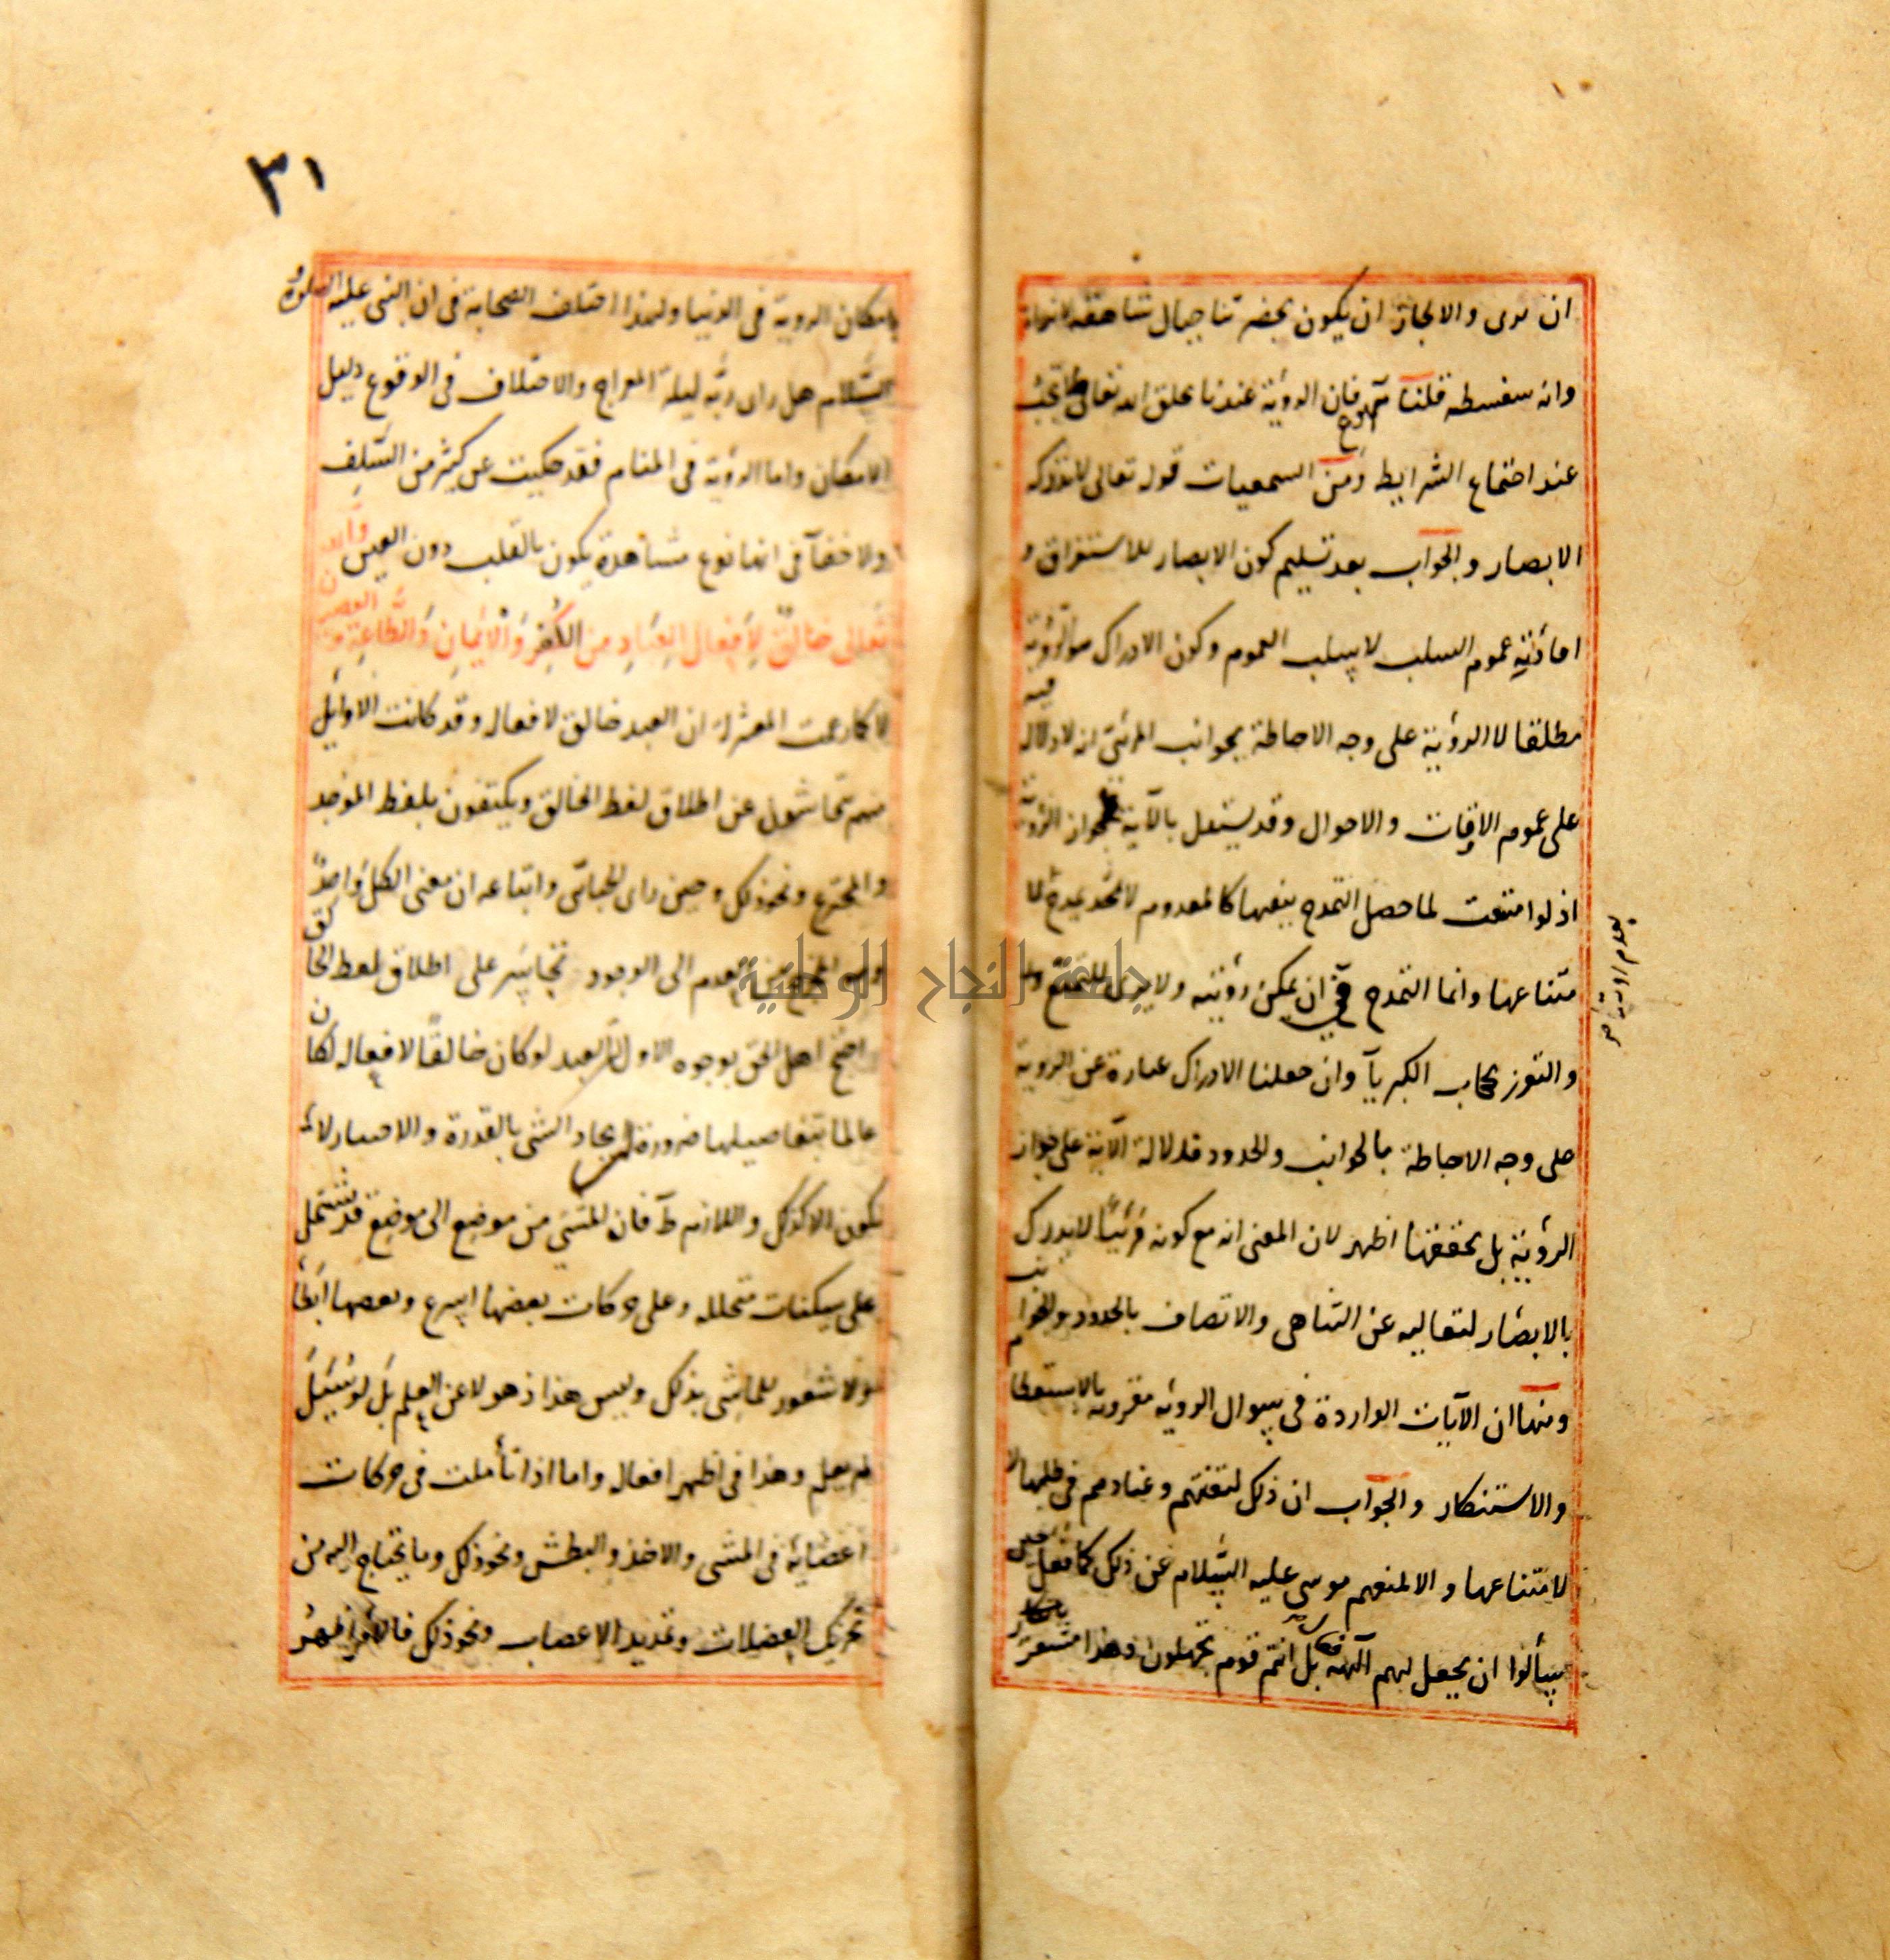 ان يرى والا لجاز ان يكون بحضرتنا جبال شاهقة لا نراها
وانه سفسطه قلنا مم فان الرؤية عندنا بخلق الله تعالى لا تجب
عند اجتماع الشرايط ومن السمعيات قوله تعالى لا تدركه
الابصار والجواب بعد تسليم كون الابصار للاستغراق و
افادته عموم السلب لا سلب العموم وكون الادراك هو الرؤية
مطلقا لا الرؤية على وجه الاحاطة بجوانب المرئي انه لا دلالة فيه
على عموم الاوقات والاحوال وقد يستدل بالآية على جواز الرؤية
اذ لو امتنعت لما حصل التمدح بنفيها كالمعدوم لا يمدح بعدم
يعدم رؤيته
متناعها وانما التمدح في ان يمكن رؤيته ولا يرى للتمنع
والتعزز بحجاب الكبريآ وان جعلنا الادراك عبارة عن الرؤية
على وجه الاحاطة بالجوانب والحدود فدلالة الآية على جواز
الرؤية بل تحققها اظهر لان المعنى انه مع كونه مرئيا لا يدرك
بالابصار لتعاليه عن التناهى والاتصاف بالحدود والجوانب
ومنها ان الآيات الواردة في سوال الرؤية مقرونة بالاستعظام
والاستنكار والجواب ان ذلك لتعنتهم وعنادهم في طلبها لا
لامتناعها والا لمنعهم موسى عليه السلام عن ذلك كما فعل حين
سألوا ان يجعل لهم آلهة فقال بل انتم قوم تجهلون وهذا مشعر
٣١
بامكان الروية في الدنيا ولهذا اختلف الصحابة في ان النبى عليه الصلوة و
السلام هل راى ربه ليلة المعراج والاختلاف في الوقوع دليل
الامكان واما الرؤية في المنام فقد حكيت عن كثير من السلف
ولا خفآ في انها نوع مشاهدة يكون بالقلب دون العين والله
تعالى خالق لافعال العباد من الكفر والايمان والطاعة والعصيان
لا كما زعمت المعتزلة ان العبد خالق لافعاله وقد كانت الاوايل
منهم تحاشون عن اطلاق لفظ الخالق ويكتفون بلفظ الموجد
والمخترع ونحو ذلك وحين راى الجبائى واتباعه ان معنى الكل واحد
وهو المخرج من العدم الى الوجود تجاسر على اطلاق لفظ الخالق
احتج اهل الحق بوجوه الاول ان العبد لو كان خالقا لافعاله لكان
عالما بتفاصيلها ضرورة ان ايجاد الشى بالقدرة والاختيار لا
يكون الا كذلك واللازم ط فان المشي من موضع الى موضع قد يشتمل
على سكنات متخلله وعلى حركات بعضها اسرع وبعضها ابطأ
ولا شعور للماشى بذلك وليس هذا ذهولا عن العلم بل لو سئل
لم يعلم وهذا في اظهر افعاله واما اذا تأملت في حركات
اعضائه في المشى والاخذ والبطش ونحو ذلك وما يحتاج اليه من
تحريك العضلات وتمديد الاعصاب ونحو ذلك فالامر اظهر
جامعة النجاح الوطنية